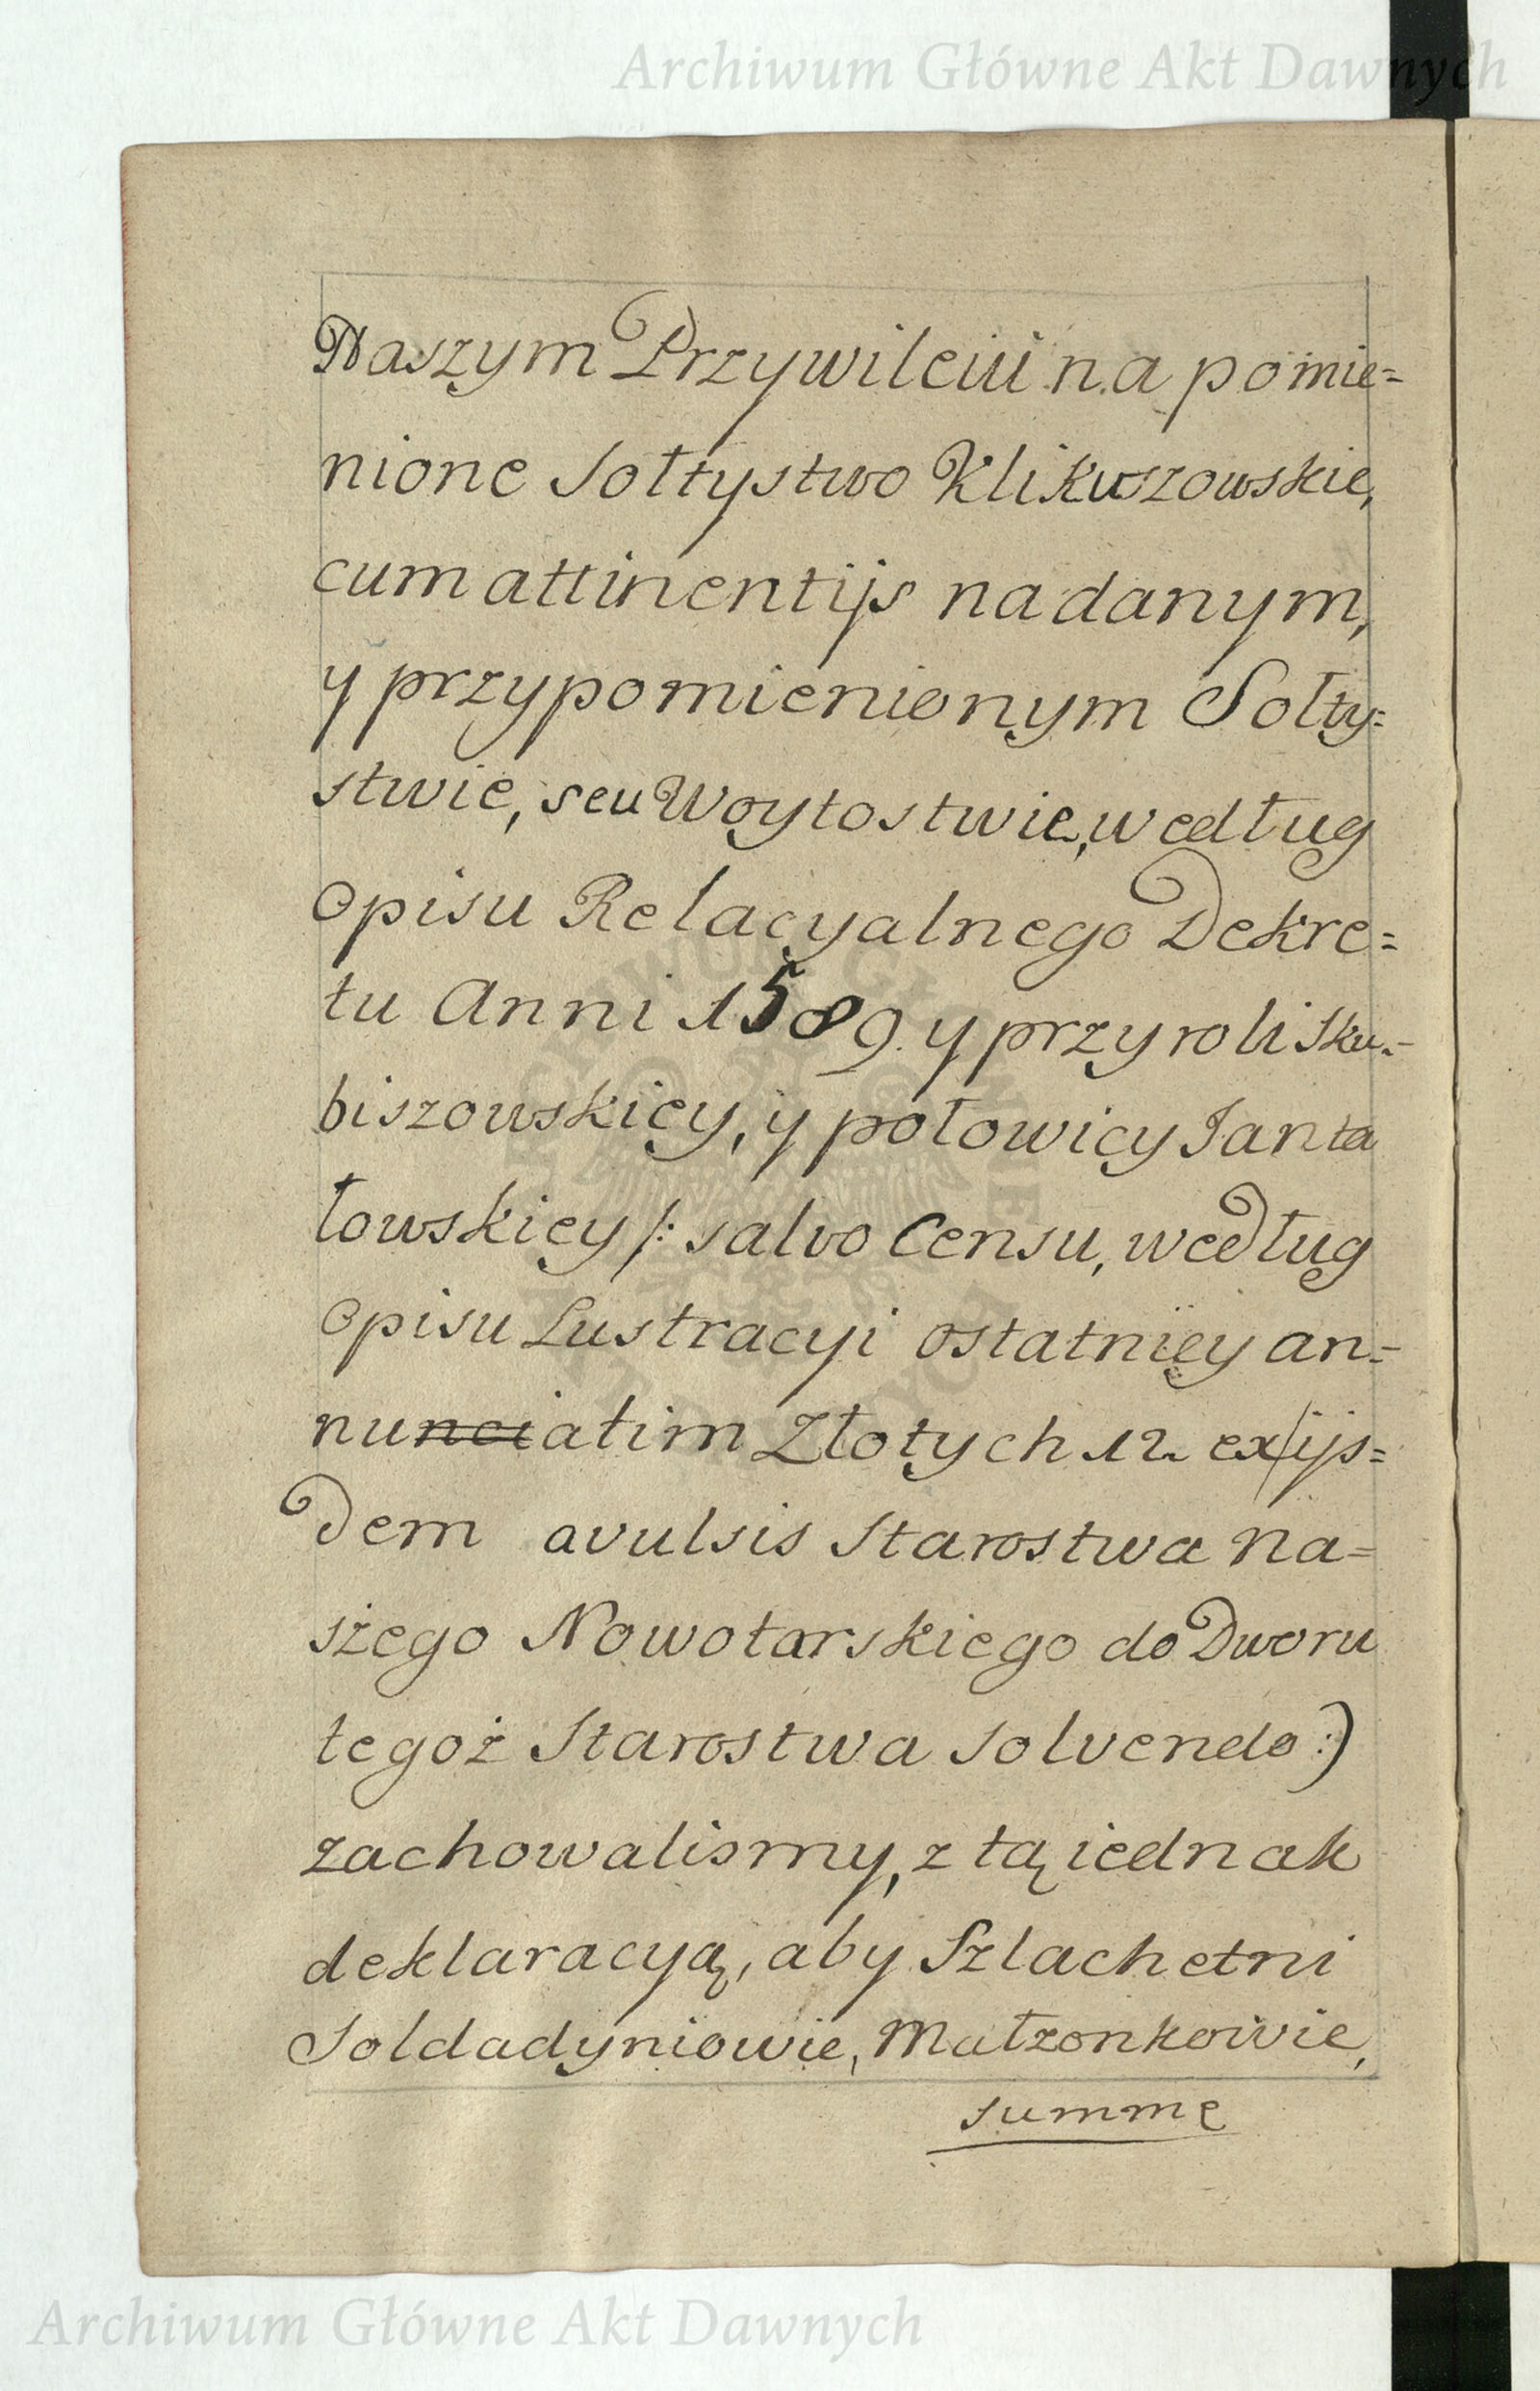 Archiwum Główne Akt Dawnych
Naszym Przywileiu na pomie=
nione Sołtystwo Klikuszowskie,
cum attinentijs nadanym,
y przypomienionym Sołty=
stwie, seu Woytostwie, według
opisu Relacyalnego Dekre=
tu Anni 1589 y przy roli Sku=
biszowskiey, y połowicy Janta
łowskiey /: salvo Censu, według
opisu Lustracyi ostatniey an=
nunciatim Złotych 12 ex ijs=
dem avulsis Starostwa Na=
szego Nowotarskiego do Dworu
tegoż Starostwa solvendo :)
zachowalismy, z tą iednak
deklaracyą, aby Szlachetni
Soldadyniowie, Małzonkowie,
summę
Archiwum Główne Akt Dawnych